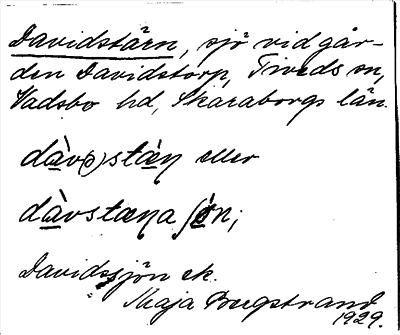 Davidstärn, sjö vid går-
den Davidstorp, Tiveds sn,
Vadsbo hd, Skaraborgs län.
dàv(ə)stæ̀ṇ eller
dàvstæṇa ʃö̀n;
Davidssjön ek.
Maja Bergstrand
1929.